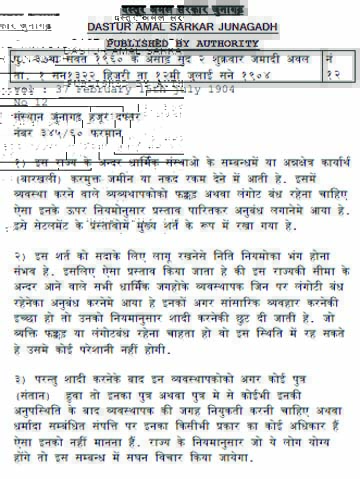 DASTUR AMAL SARKAR JUNAGADH
PUBLISHED BY AUTHORITY
पु. ३७मा संवत १९६० के असाड सुद २ शुक्रवार जमादी अवल नं
ता. १ सन१३२२ हिजरी ता १२मी जुलाई सने १९०४ १२
37 February 15th july 1904
No 12
संस्थान जुनागढ हजुर दफ्तर
नंबर ३४५/६० फरमान
१) इस राज्य के अन्दर धार्मिक संस्थाओ के सम्बन्धमें या अन्नक्षेत्र कार्यार्थ
(बारखली) करमुक्त जमीन या नकद रकम देने में आती हे. इसमें
व्यवस्था करने वाले व्यव्थापकोको फक्कड अथवा लंगोट बंध रहेना चाहिए
ऐसा इनके ऊपर नियमोनुसार प्रस्ताव पारितकर अनुबंध लगानेमे आया हे.
इसे सेटलमेंट के प्रस्तावोमें मुख्य शर्त के रूप में रखा गया हे.
२) इस शर्त को सदाके लिए लागू रखनेसे निति नियमोका भंग होना
संभव हे. इसलिए ऐसा प्रस्ताव किया जाता हे की इस राज्यकी सीमा के
अन्दर आने वाले सभी धार्मिक जगहोके व्यवस्थापक जिन पर लंगोटी बंध
रहेनेका अनुबंध करनेमे आया हे इनकों अगर सांसारिक व्यवहार करनेकी
इच्छा हो तो उनको नियमानुसार शादी करनेकी छुट दी जाती हे. जो
व्यक्ति फक्कड या लंगोटबंध रहेना चाहता हो वो इस स्थिति में रह सकते
हे उसमे कोई परेशानी नहीं होगी.
३) परन्तु शादी करनेके बाद इन व्यवस्थापकोको अगर कोई पुत्र
(संतान) हुवा तो इनका पुत्र अथवा पुत्र मे से कोईभी इनकी
अनुपस्थिति के बाद व्यवस्थापक की जगह नियुक्ती करनी चाहिए अथवा
धर्मादा सम्बंधित संपत्ति पर इनका किसीभी प्रकार का कोई अधिकार हैं
ऐसा इनको नहीं मानना हैं. राज्य के नियमानुसार जो ये लोग योग्य
होंगे तो इस सम्बन्ध में सघन विचार किया जायेगा.